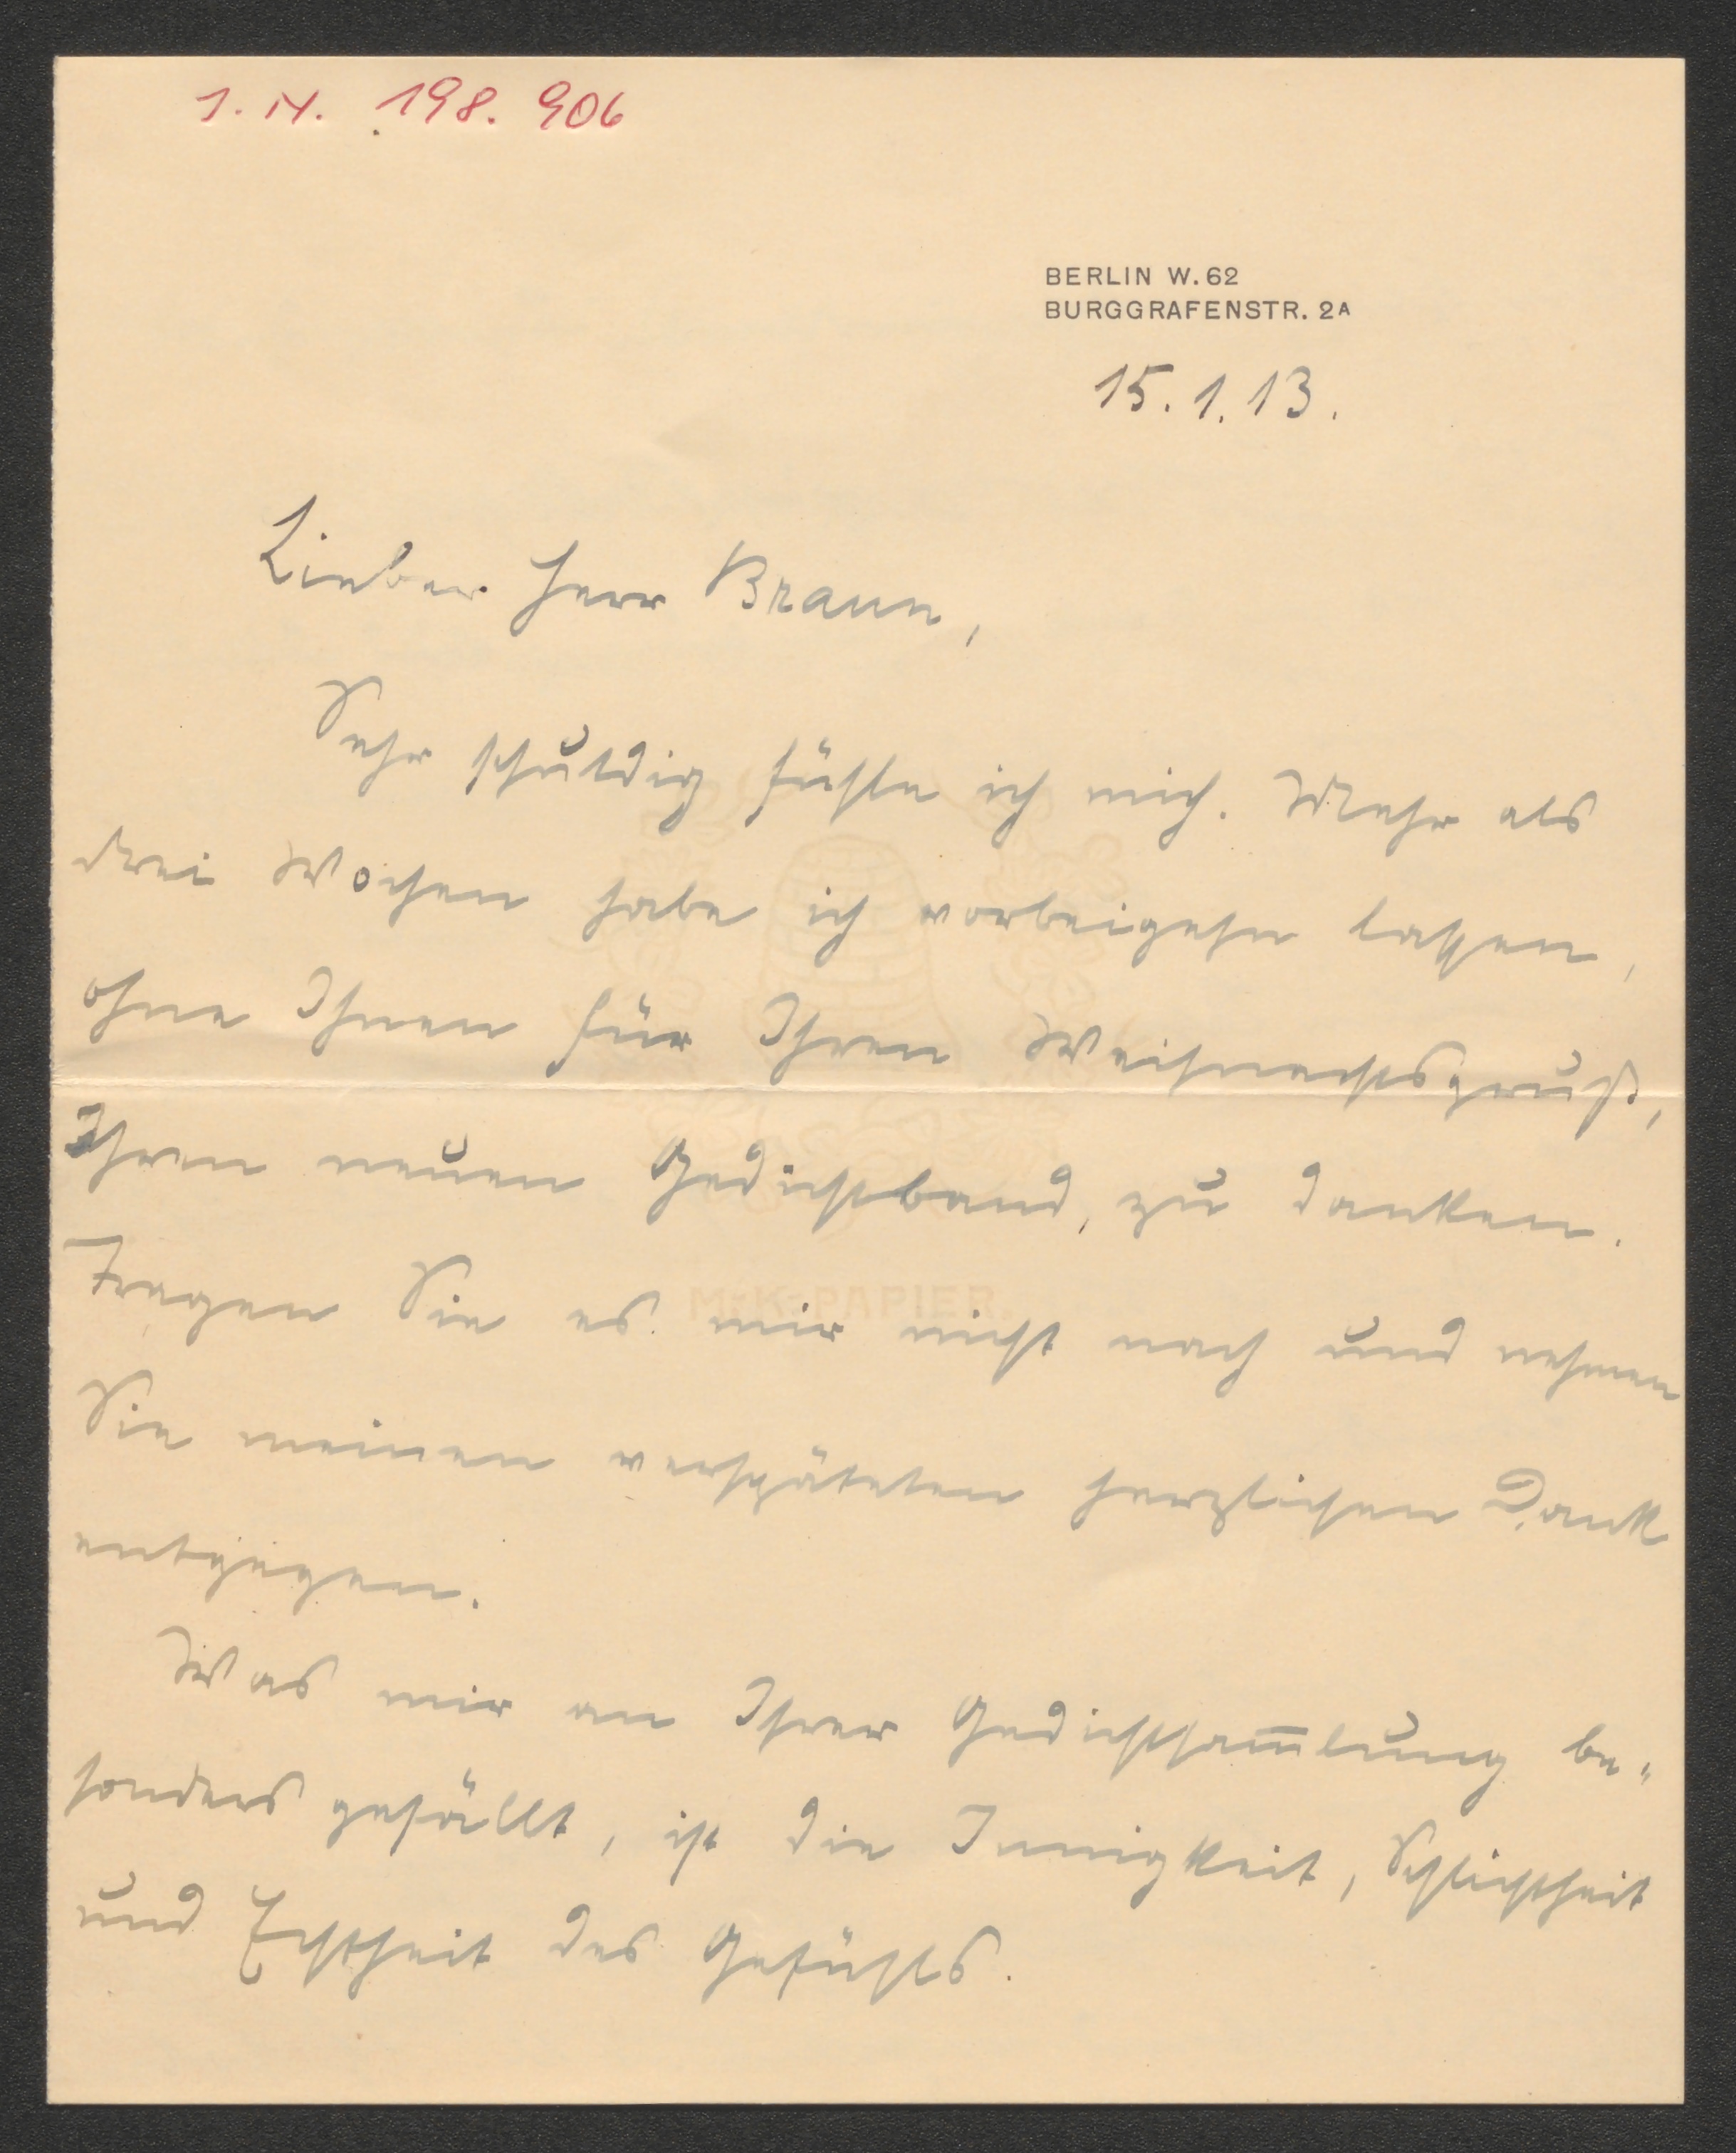 I. N. 198. 906
BERLIN W. 62
BURGGRAFENSTR. 2A
15. 1. 13.
Lieber Herr Braun,
Sehr schuldig fühle ich mich. Mehr als
drei Wochen habe ich vorbeigehn lassen,
ohne Ihnen für Ihren Weihnachtsgruß,
Ihren neuen Gedichtband, zu danken.
Tragen Sie es mir nicht nach und nehmen
M-K-PAPIER.
Sie meinen verspäteten herzlichen Dank
entgegen.
Was mir an Ihrer Gedichtsam̅lung be-
sonders gefällt, ist die Innigkeit, Schlichtheit
und Echtheit des Gefühls.